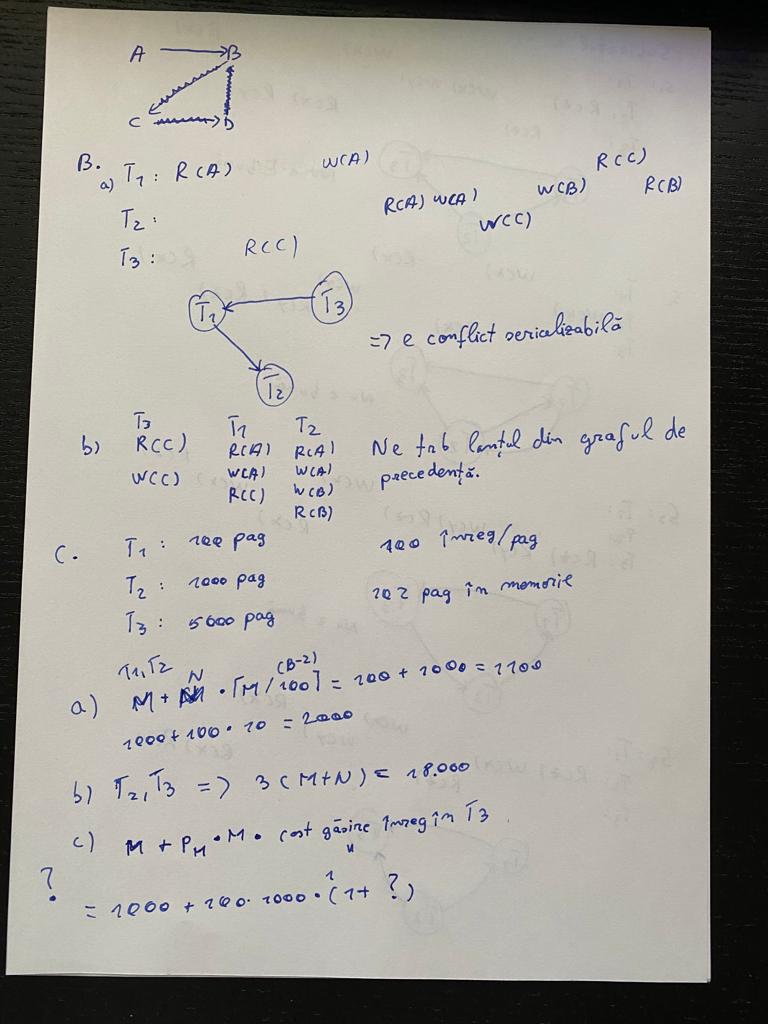 A B
C D
B.
a) T1 : R(A) W(A) R(C)
R(A) W(A) W(B) R(B)
T2 : W(C)
T3 : R(C)
T1 T3
=> e conflict serializabilă
T2
T3 T1 T2
b) R(C) R(A) R(A) Ne trb lanțul din graful de
W(C) W(A) W(A) precedență.
R(C) W(B)
R(B)
C. T1 : 100 pag 100 înreg/pag
T2 : 1000 pag 102 pag în memorie
T3 : 5000 pag
T1, T2 N (B-2)
a) M + · ⌈M/100⌉ = 100 + 1000 = 1100
1000 + 100 · 10 = 2000
b) T2, T3 => 3(M+N) = 18.000
c) M + PM · M · cost găsire înreg în T3
?
= 1000 + 100 · 1000 · (1 + ?)
1